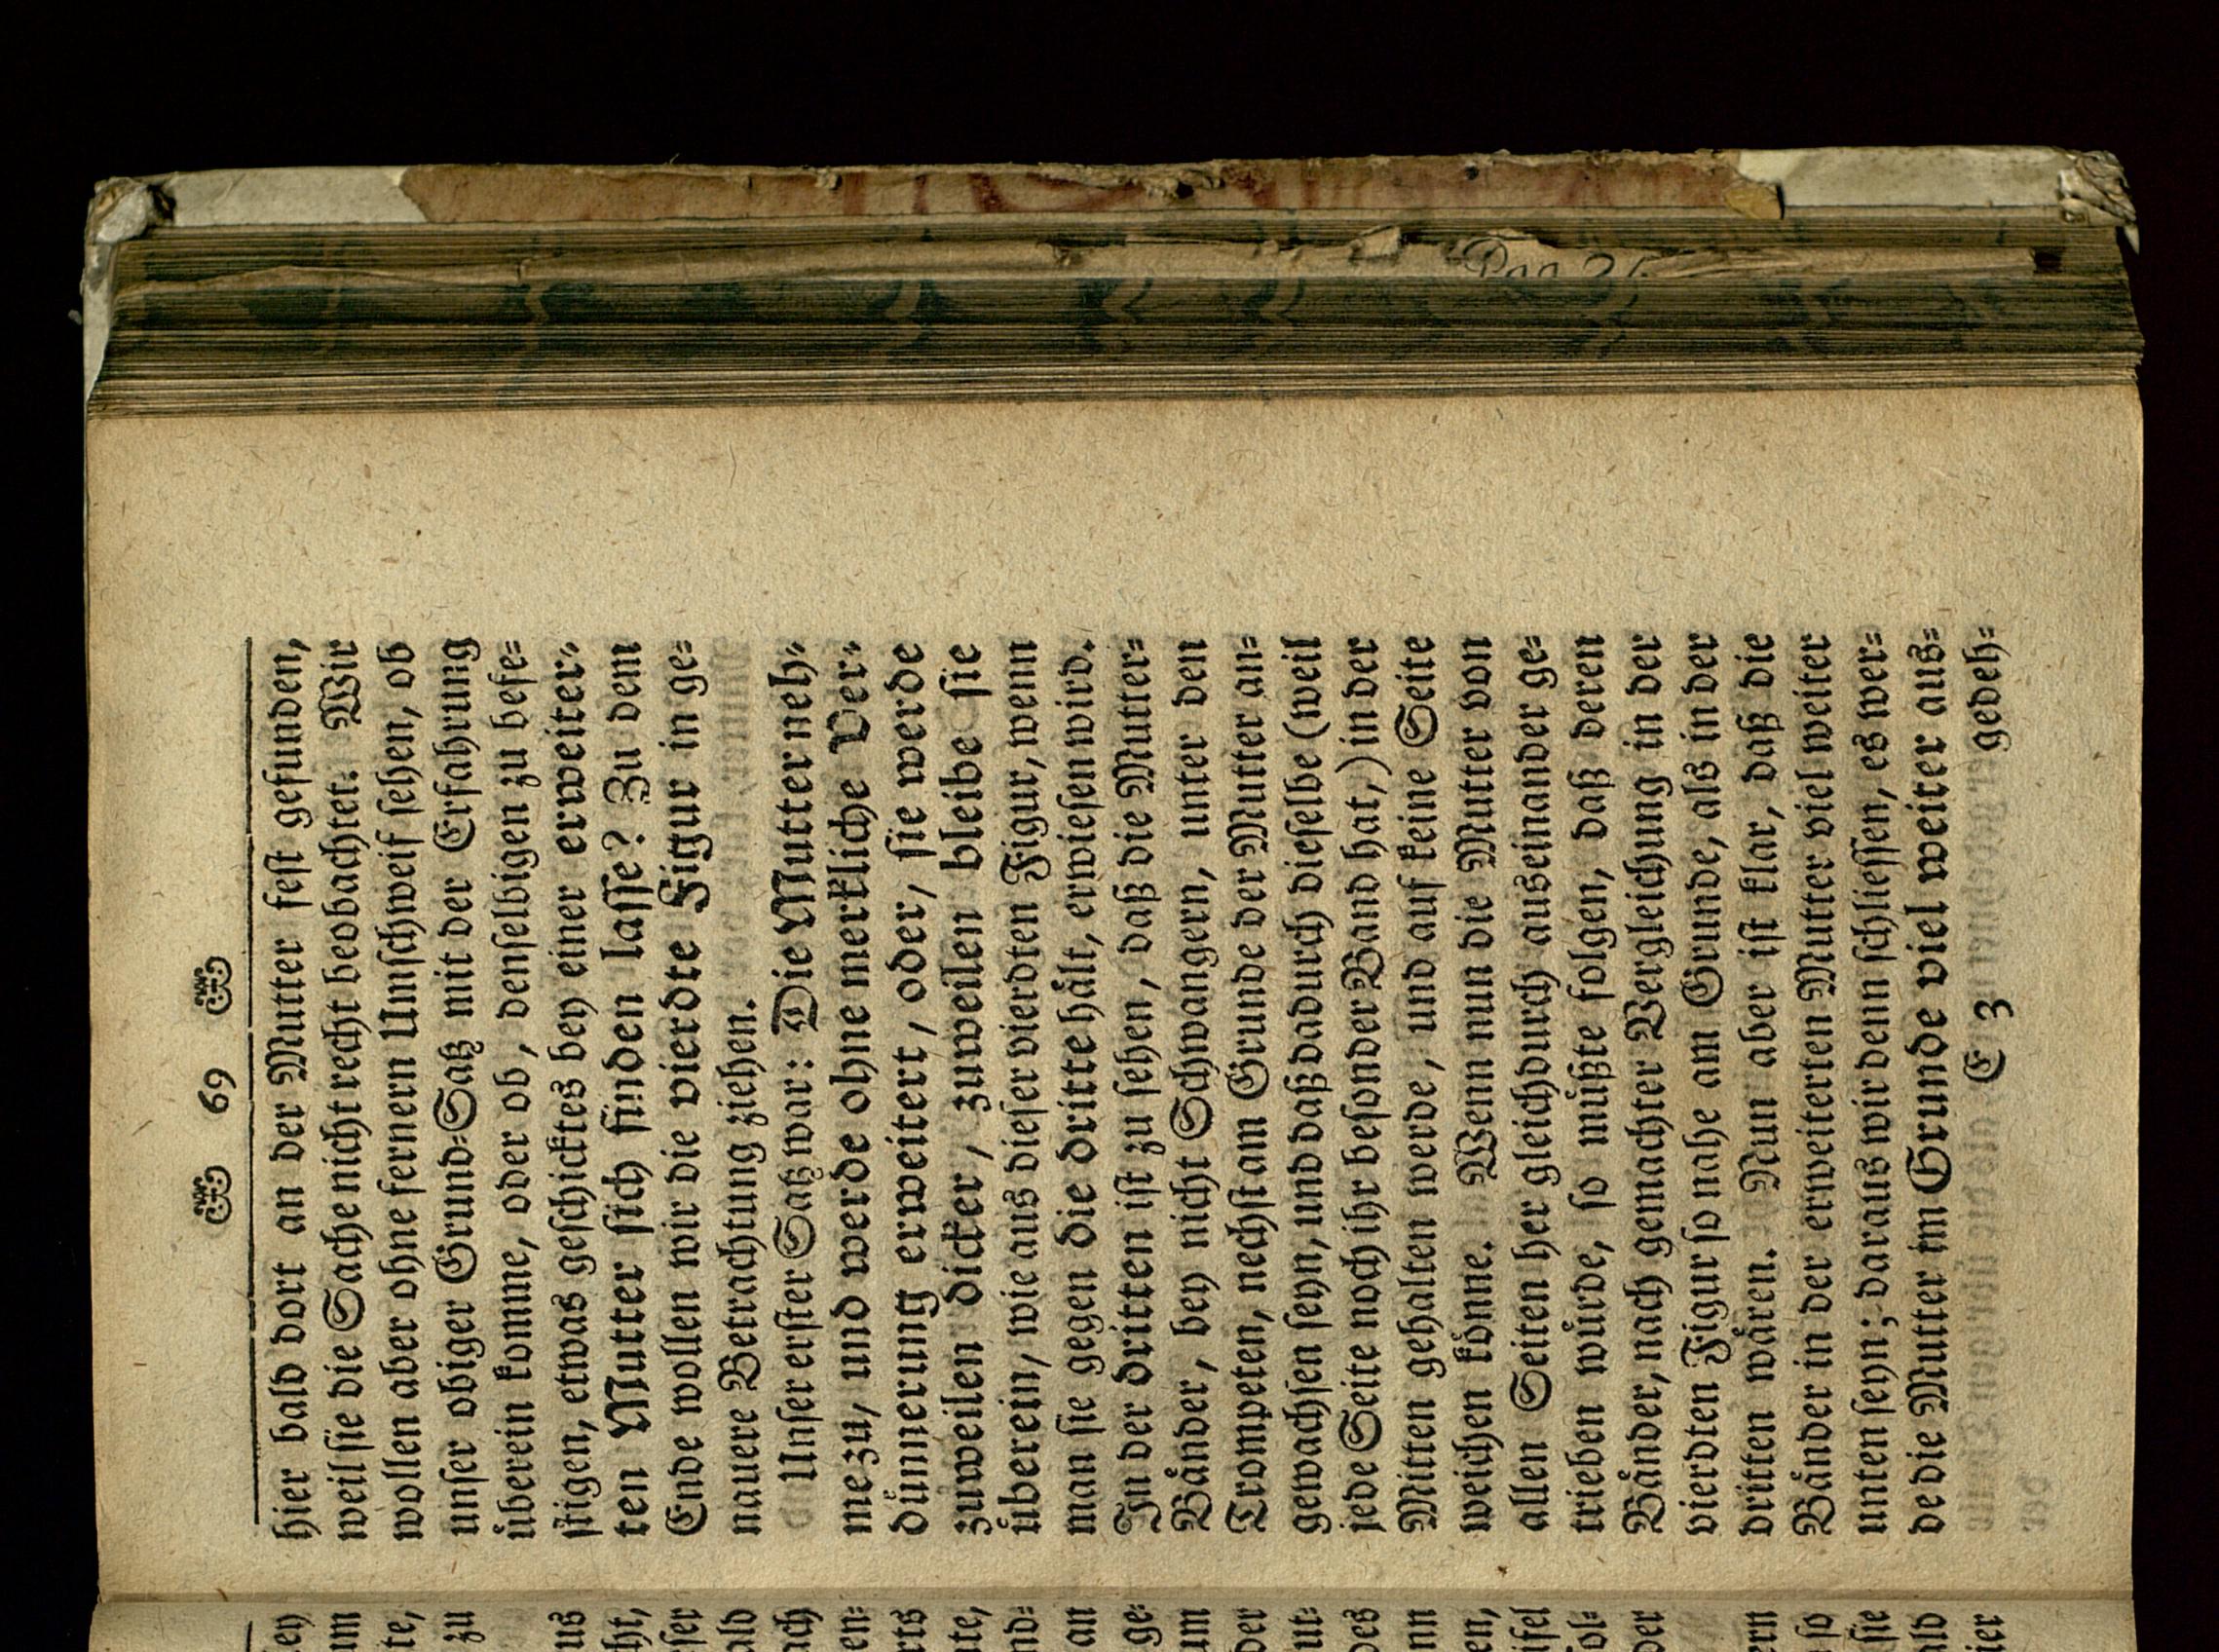 69
hier bald dort an der Mutter fest gefunden,
weil sie die Sache nicht recht beobachtet. Wir
wollen aber ohne fernern Umschweif sehen, ob
unser obiger Grund-Satz mit der Erfahrung
überein komme, oder ob, denselbigen zu befe-
stigen, etwas geschicktes bey einer erweiter-
ten Mutter sich finden lasse? Zu dem
Ende wollen wir die vierdte Figur in ge-
nauere Betrachtung ziehen.
Unser erster Satz war: Die Mutter neh-
me zu, und werde ohne merkliche Ver-
dünnerung erweitert, oder, sie werde
zuweilen dicker, zuweilen bleibe sie
überein, wie aus dieser vierdten Figur, wenn
man sie gegen die dritte hält, erwiesen wird.
In der dritten ist zu sehen, daß die Mutter-
Bänder, bey nicht Schwangern, unter den
Trompeten, nechst am Grunde der Mutter an-
gewachsen seyn, und daß dadurch dieselbe (weil
jede Seite noch ihr besonder Band hat,) in der
Mitten gehalten werde, und auf keine Seite
weichen könne. Wenn nun die Mutter von
allen Seiten her gleichdurch auseinander ge-
trieben würde, so müßte folgen, daß deren
Bänder, nach gemachter Vergleichung in der
vierdten Figur so nahe am Grunde, als in der
dritten wären. Nun aber ist klar, daß die
Bänder in der erweiterten Mutter viel weiter
unten seyn; daraus wir denn schliessen, es wer-
de die Mutter im Grunde viel weiter aus-
E 3 gedeh-